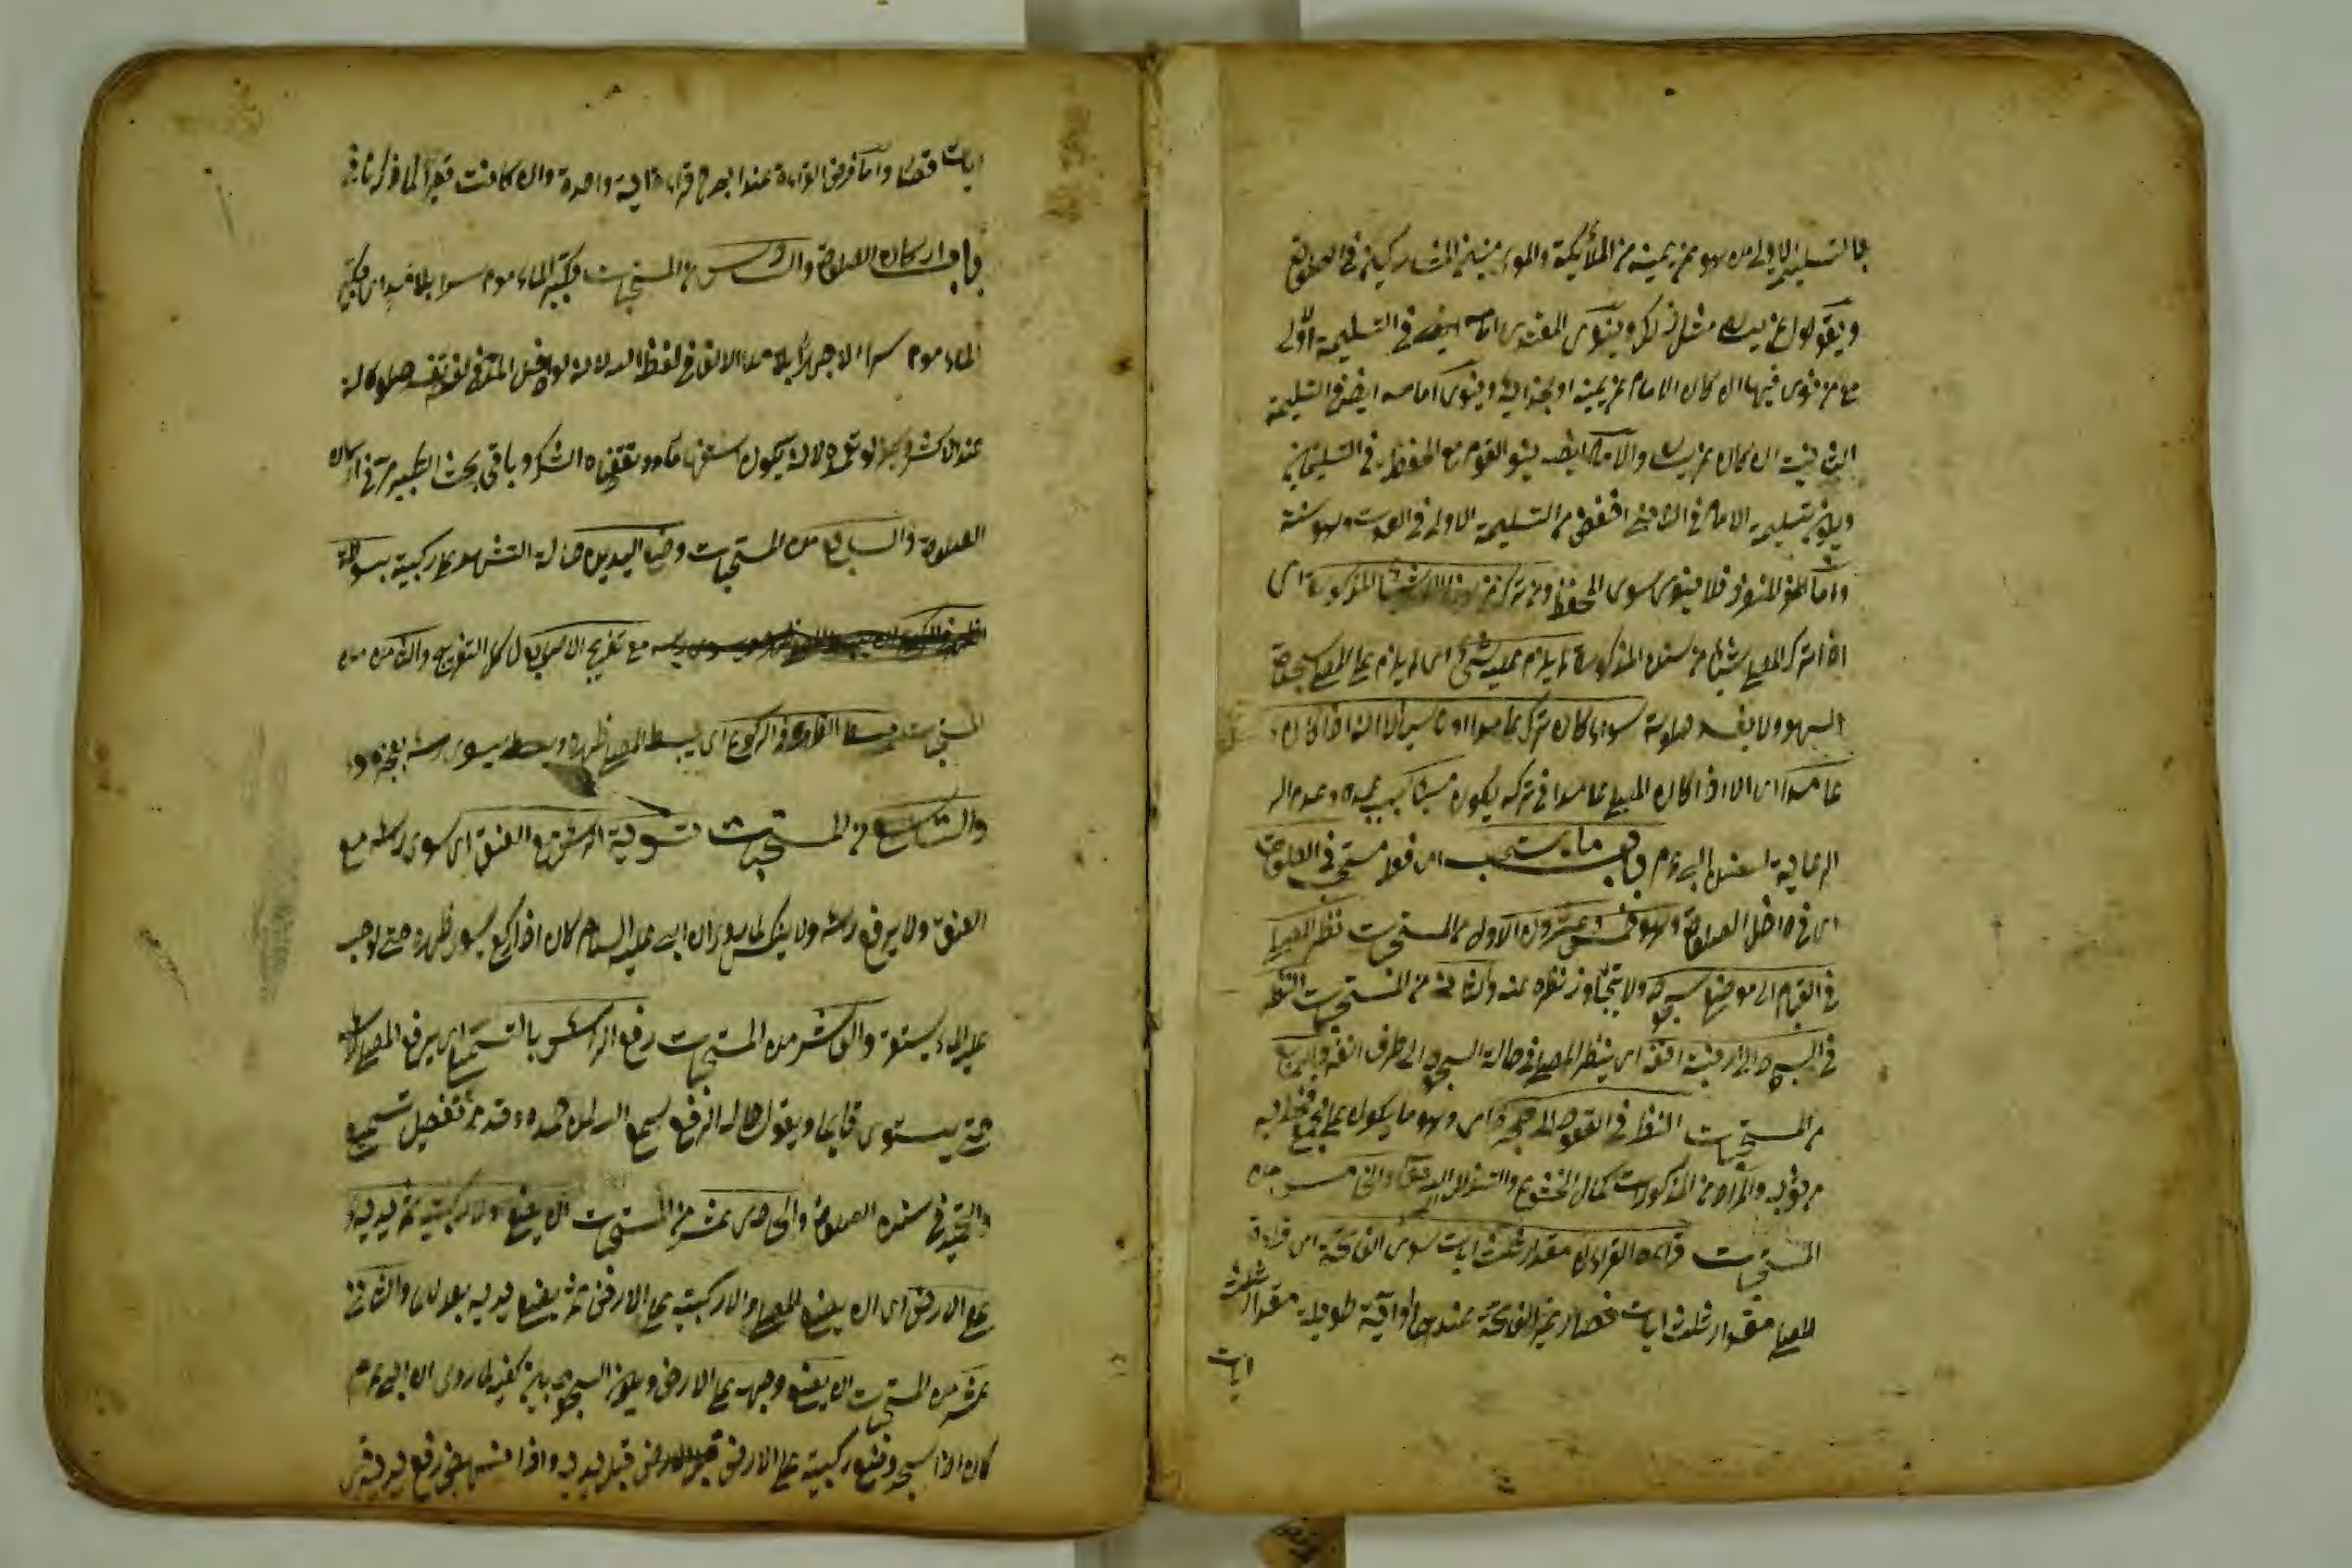 بالتسليم الاولى من هو عن يمينه من الملائكة والمومنين المشاركين في الصلوة
ويقول عن يساره مثل ذلك وينوى المقتدى امامه ايضا في التسليمة الاولى
مع من نوى فيها ان كان الامام عن يمينه او بحذائه وينوى امامه ايضا في التسليمة
الثانية ان كان عن يساره والامام ايضا ينو القوم مع الحفظة في التسليمتين
ويكون تسليمه الامام في الثانية اخفض من التسليمة الاولى في الصوت وهو سنة
واما المنفرد فلا ينوى سوى الحفظة ومن ترك من هذا الاشياء المذكورة اى
اذا ترك المصلى شيئا من سنن المذكورة لا يلزم عليه شئ اى لا يلزم على المصلى سجدة
السهو ولا يفسد صلوته سواء كان تركه عامدا او ناسيا الا انه اذا كان
عامدا اى الا اذا كان المصلى عامدا في تركه يكون مسيئا بسبب عمده وعدم
الرعاية لفعل النبى عم باب ما يستحب اى فعله مستحب في الصلوة
اى في داخل الصلوة وهو خمس وعشرون الاول من المستحبات نظر المصلى
في القيام الى موضع سجوده ولا يتجاوز نظره عنه والثانى من المستحبات النظر
في السجود الى ارنبة انفه اى ينظر المصلى في حالة السجود الى طرف انفه والرابع
من المستحبات النظر في القعود الى حجره اى وهو ما يكون على
من ثوبه والمراد من المذكورات كمال الخشوع والخامس من
المستحبات قراءة القران مقدار ثلث ايات سوى الفاتحة اى قراءة
المصلى مقدار ثلث ايات قصار غير الفاتحة عندهما او آية طويلة مقدار ثلث
ايات
ايات قصار واما فرض القراءة عند ابى ح قراءة اية واحدة وان كانت قصيرا لما ذكرنا في
باب اركان الصلوة والسادس من المستحبات تكبير الماءموم سرا بلا مد اى يكبر
الماءموم سرا لا جهرا بلا مد الالف في لفظ الله لانه لو دخل المد في تفسد صلوته
عند الاكثر ولو تعمده لانه يكون استفهاما ومقتضاه الشك وباقى بحث التكبير مر في اركان
الصلوة والسابع من المستحبات وضع اليدين حالة التشهد على ركبتيه
مع تفريج الاصابع ل كل التفريج والثامن من
المستحبات بسط الظهر في الركوع اى يبسط المصلى ظهره ويسوى رأسه بعجزه
والتاسع من المستحبات تسوية الرأس مع العنق اى يسوى رأسه مع
العنق ولا يرفع رأسه ولا ينكس لما روى ان النبى عليه السلام كان اذا ركع يسوى ظهره حتى لو صب
عليه الماء يستوى والعاشر من المستحبات رفع الرأس بالتسميع اى يرفع المصلى رأسه
حتى يستوى قائما ويقول حالة الرفع سمع الله لمن حمده وقد مر تفصيل تسميع
والتحميد في سنن الصلوة والحادى عشر من المستحبات ان يضع اولا ركبتيه ثم يديه
على الارض اى ان يضع المصلى اولا ركبتيه على الارض ثم يضع يديه بعد والثانى
عشر من المستحبات ان يضع وجهه على الارض ويكون السجود بين كفيه لما روى ان النبى عم
كان اذا سجد وضع ركبتيه على الارض قبل يديه واذا نهض رفع يديه قبل